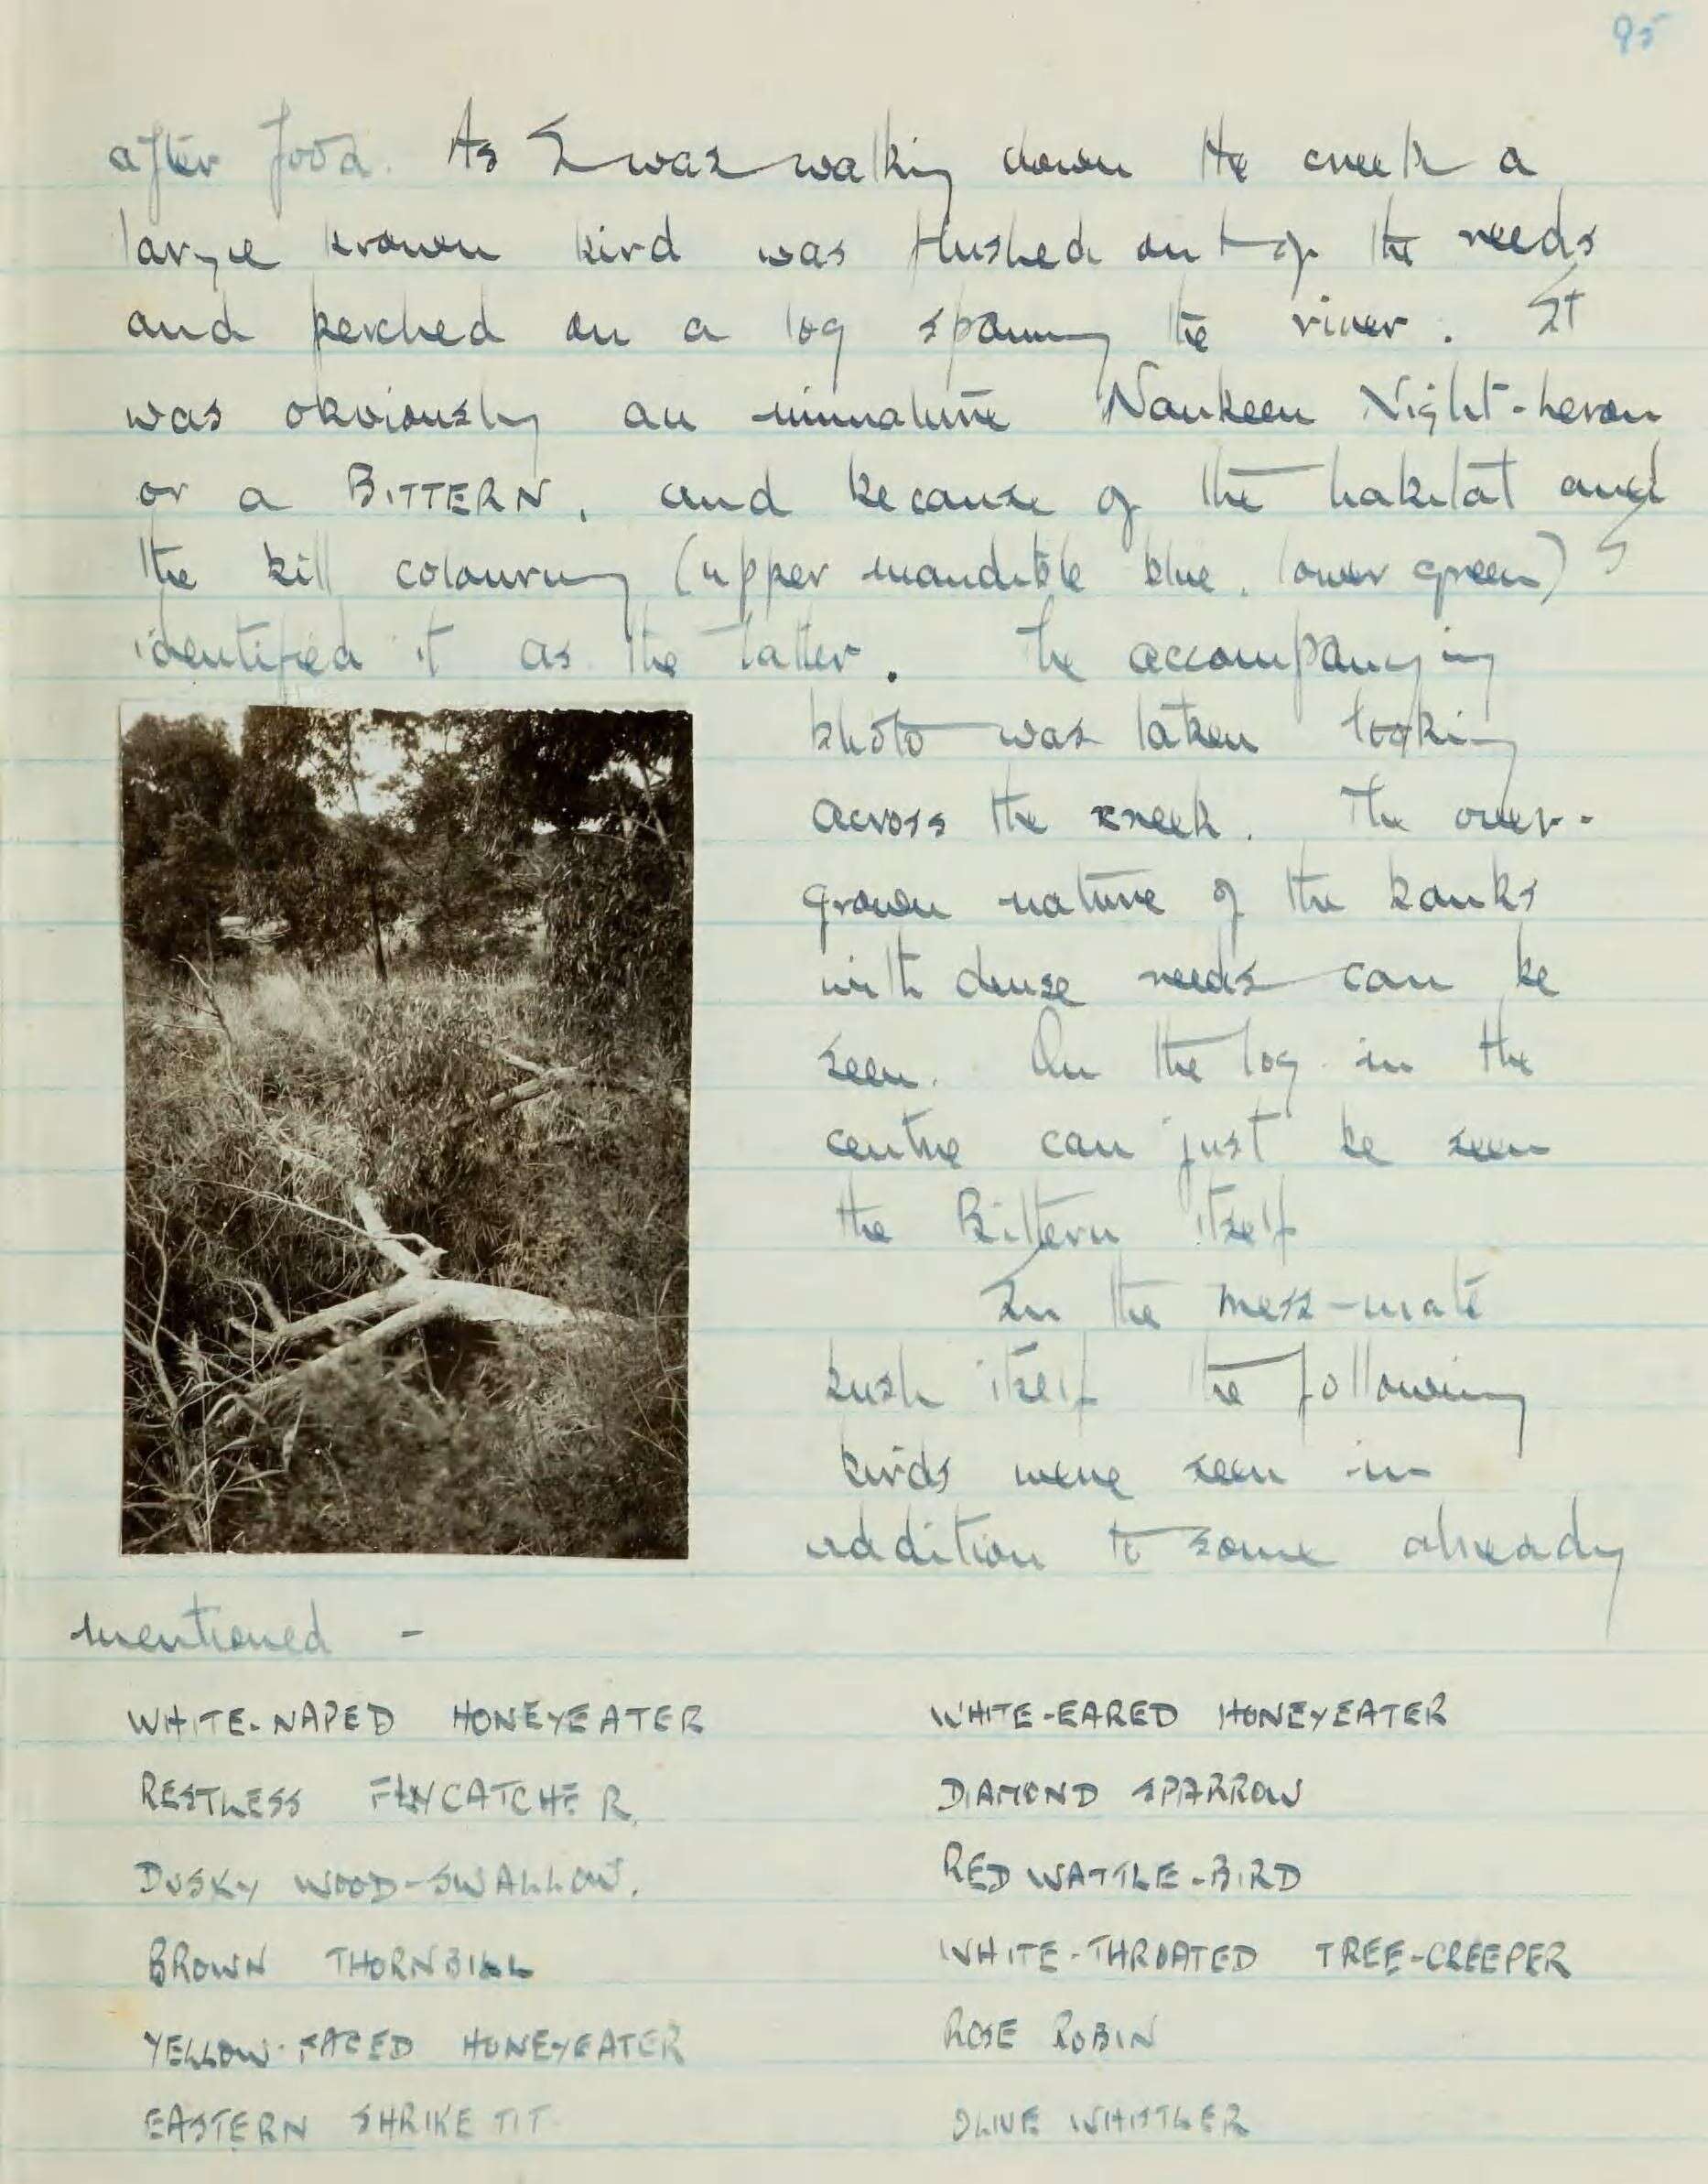 95
after food. As I was walking down the creek a
large brown bird was flushed out of the reeds
and perched on a log spanning the river. It
was obviously an immature Nankeen Night-heron
or a BITTERN, and because of the habitat and
the bill colouring (upper mandible blue, lower green) I
identified it as the latter. The accompanying
photo was taken looking
across the creek. The over-
grown nature of the banks
with dense reeds can be
seen. On the log in the
centre can just be seen
the Bittern itself
In the mess-mate
bush itself the following
birds were seen in
addition to some already
mentioned -
WHITE-NAPED HONEYEATER WHITE-EARED HONEYEATER
RESTLESS FLYCATCHER. DIAMOND SPARROW
DUSKY WOOD-SWALLOW. RED WATTLE-BIRD
BROWN THORNBILL WHITE-THROATED TREE-CREEPER
YELLOW-FACED HONEYEATER ROSE ROBIN
EASTERN SHRIKE TIT OLIVE WHISTLER